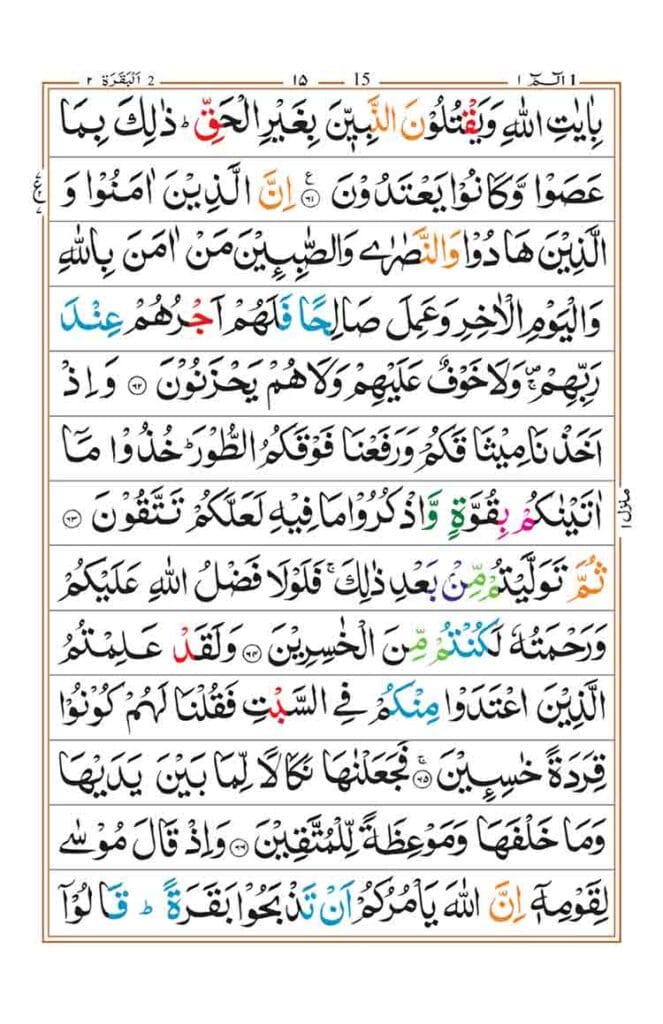 الٓمّٓ ١ 1 15 ١٥ 2 اَلْبَقَرَة ٢
بِاٰيٰتِ اللّٰهِ وَيَقْتُلُوْنَ النَّبِيّٖنَ بِغَيْرِ الْحَقِّ ؕ ذٰلِكَ بِمَا
عَصَوْا وَّكَانُوْا يَعْتَدُوْنَ ۝٦١ ع اِنَّ الَّذِيْنَ اٰمَنُوْا وَ
الَّذِيْنَ هَادُوْا وَالنَّصٰرٰى وَالصّٰبِـِٕيْنَ مَنْ اٰمَنَ بِاللّٰهِ
وَالْيَوْمِ الْاٰخِرِ وَعَمِلَ صَالِحًا فَلَهُمْ اَجْرُهُمْ عِنْدَ
رَبِّهِمْ ۪ۚ وَلَا خَوْفٌ عَلَيْهِمْ وَلَا هُمْ يَحْزَنُوْنَ ۝٦٢ وَاِذْ
اَخَذْنَا مِيْثَاقَكُمْ وَرَفَعْنَا فَوْقَكُمُ الطُّوْرَ ؕ خُذُوْا مَآ
اٰتَيْنٰكُمْ بِقُوَّةٍ وَّاذْكُرُوْا مَا فِيْهِ لَعَلَّكُمْ تَتَّقُوْنَ ۝٦٣
منزل ١
ثُمَّ تَوَلَّيْتُمْ مِّنْۢ بَعْدِ ذٰلِكَ ۚ فَلَوْلَا فَضْلُ اللّٰهِ عَلَيْكُمْ
وَرَحْمَتُهٗ لَكُنْتُمْ مِّنَ الْخٰسِرِيْنَ ۝٦٤ وَلَقَدْ عَلِمْتُمُ
الَّذِيْنَ اعْتَدَوْا مِنْكُمْ فِي السَّبْتِ فَقُلْنَا لَهُمْ كُوْنُوْا
قِرَدَةً خٰسِـِٕيْنَ ۚ ۝٦٥ فَجَعَلْنٰهَا نَكَالًا لِّمَا بَيْنَ يَدَيْهَا
وَمَا خَلْفَهَا وَمَوْعِظَةً لِّلْمُتَّقِيْنَ ۝٦٦ وَاِذْ قَالَ مُوْسٰى
لِقَوْمِهٖٓ اِنَّ اللّٰهَ يَاْمُرُكُمْ اَنْ تَذْبَحُوْا بَقَرَةً ؕ قَالُوْٓا